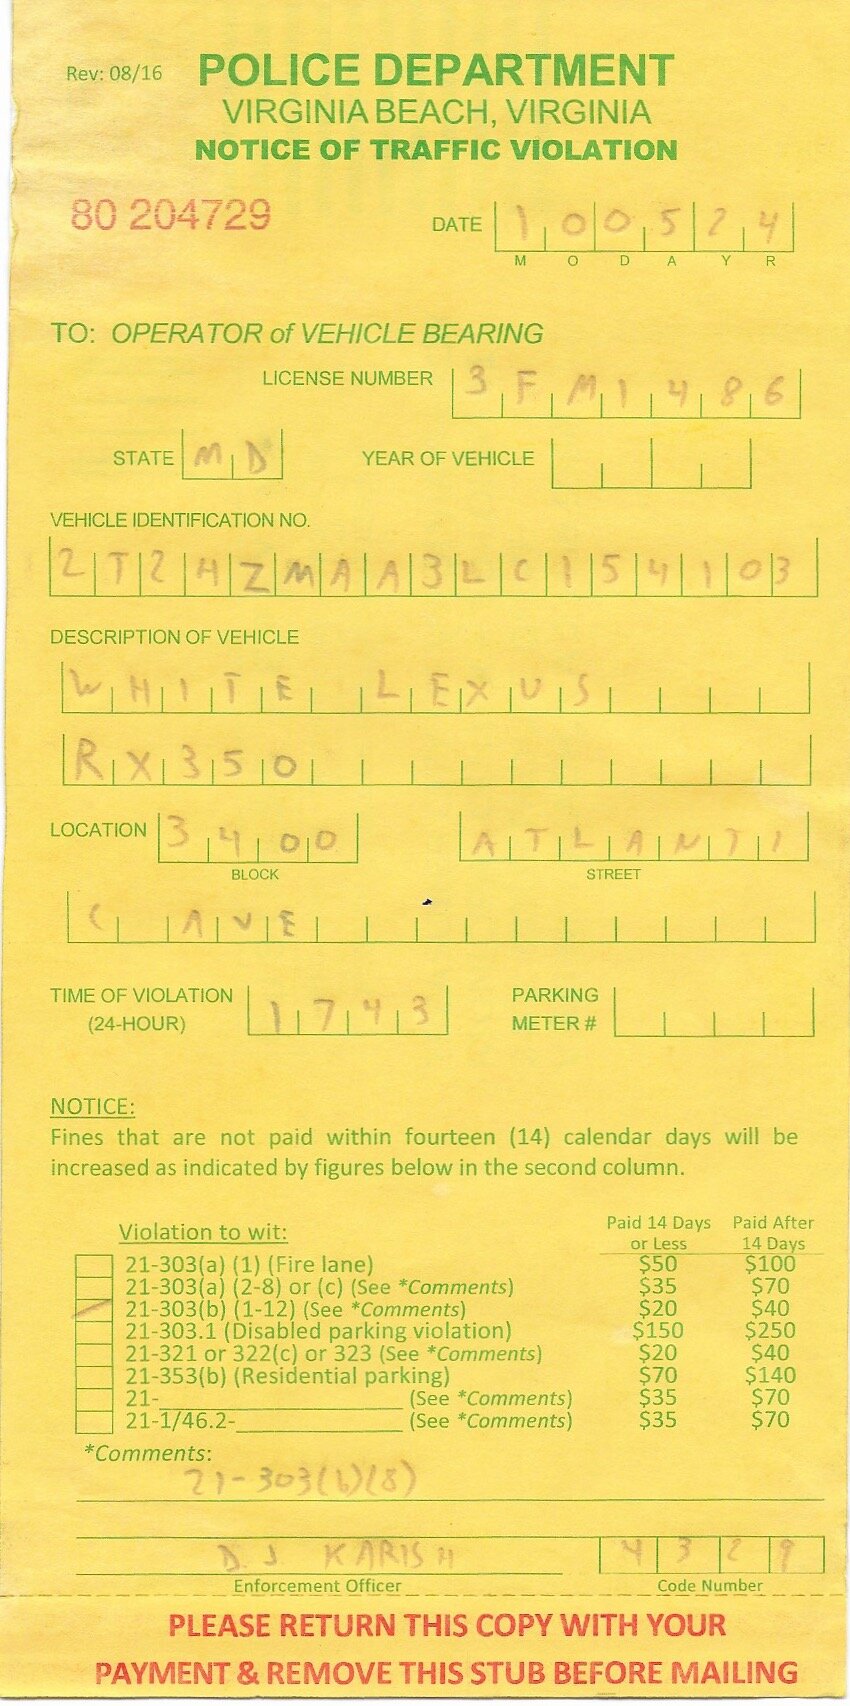 Rev: 08/16 POLICE DEPARTMENT
VIRGINIA BEACH, VIRGINIA
NOTICE OF TRAFFIC VIOLATION
80 204729 DATE 100524
M O D A Y R
TO: OPERATOR of VEHICLE BEARING
LICENSE NUMBER 3FM1486
STATE MD YEAR OF VEHICLE
VEHICLE IDENTIFICATION NO.
2T2HZMAA3LC154103
DESCRIPTION OF VEHICLE
WHITE LEXUS
RX350
LOCATION 3400 ATLANTI
BLOCK STREET
C AVE
TIME OF VIOLATION 1743 PARKING
(24-HOUR) METER #
NOTICE:
Fines that are not paid within fourteen (14) calendar days will be
increased as indicated by figures below in the second column.
Violation to wit: Paid 14 Days Paid After
or Less 14 Days
21-303(a) (1) (Fire lane) $50 $100
21-303(a) (2-8) or (c) (See *Comments) $35 $70
21-303(b) (1-12) (See *Comments) $20 $40
21-303.1 (Disabled parking violation) $150 $250
21-321 or 322(c) or 323 (See *Comments) $20 $40
21-353(b) (Residential parking) $70 $140
21-____________________ (See *Comments) $35 $70
21-1/46.2-______________ (See *Comments) $35 $70
*Comments:
21-303(b)(8)
D.J KARISH 4329
Enforcement Officer Code Number
PLEASE RETURN THIS COPY WITH YOUR
PAYMENT & REMOVE THIS STUB BEFORE MAILING